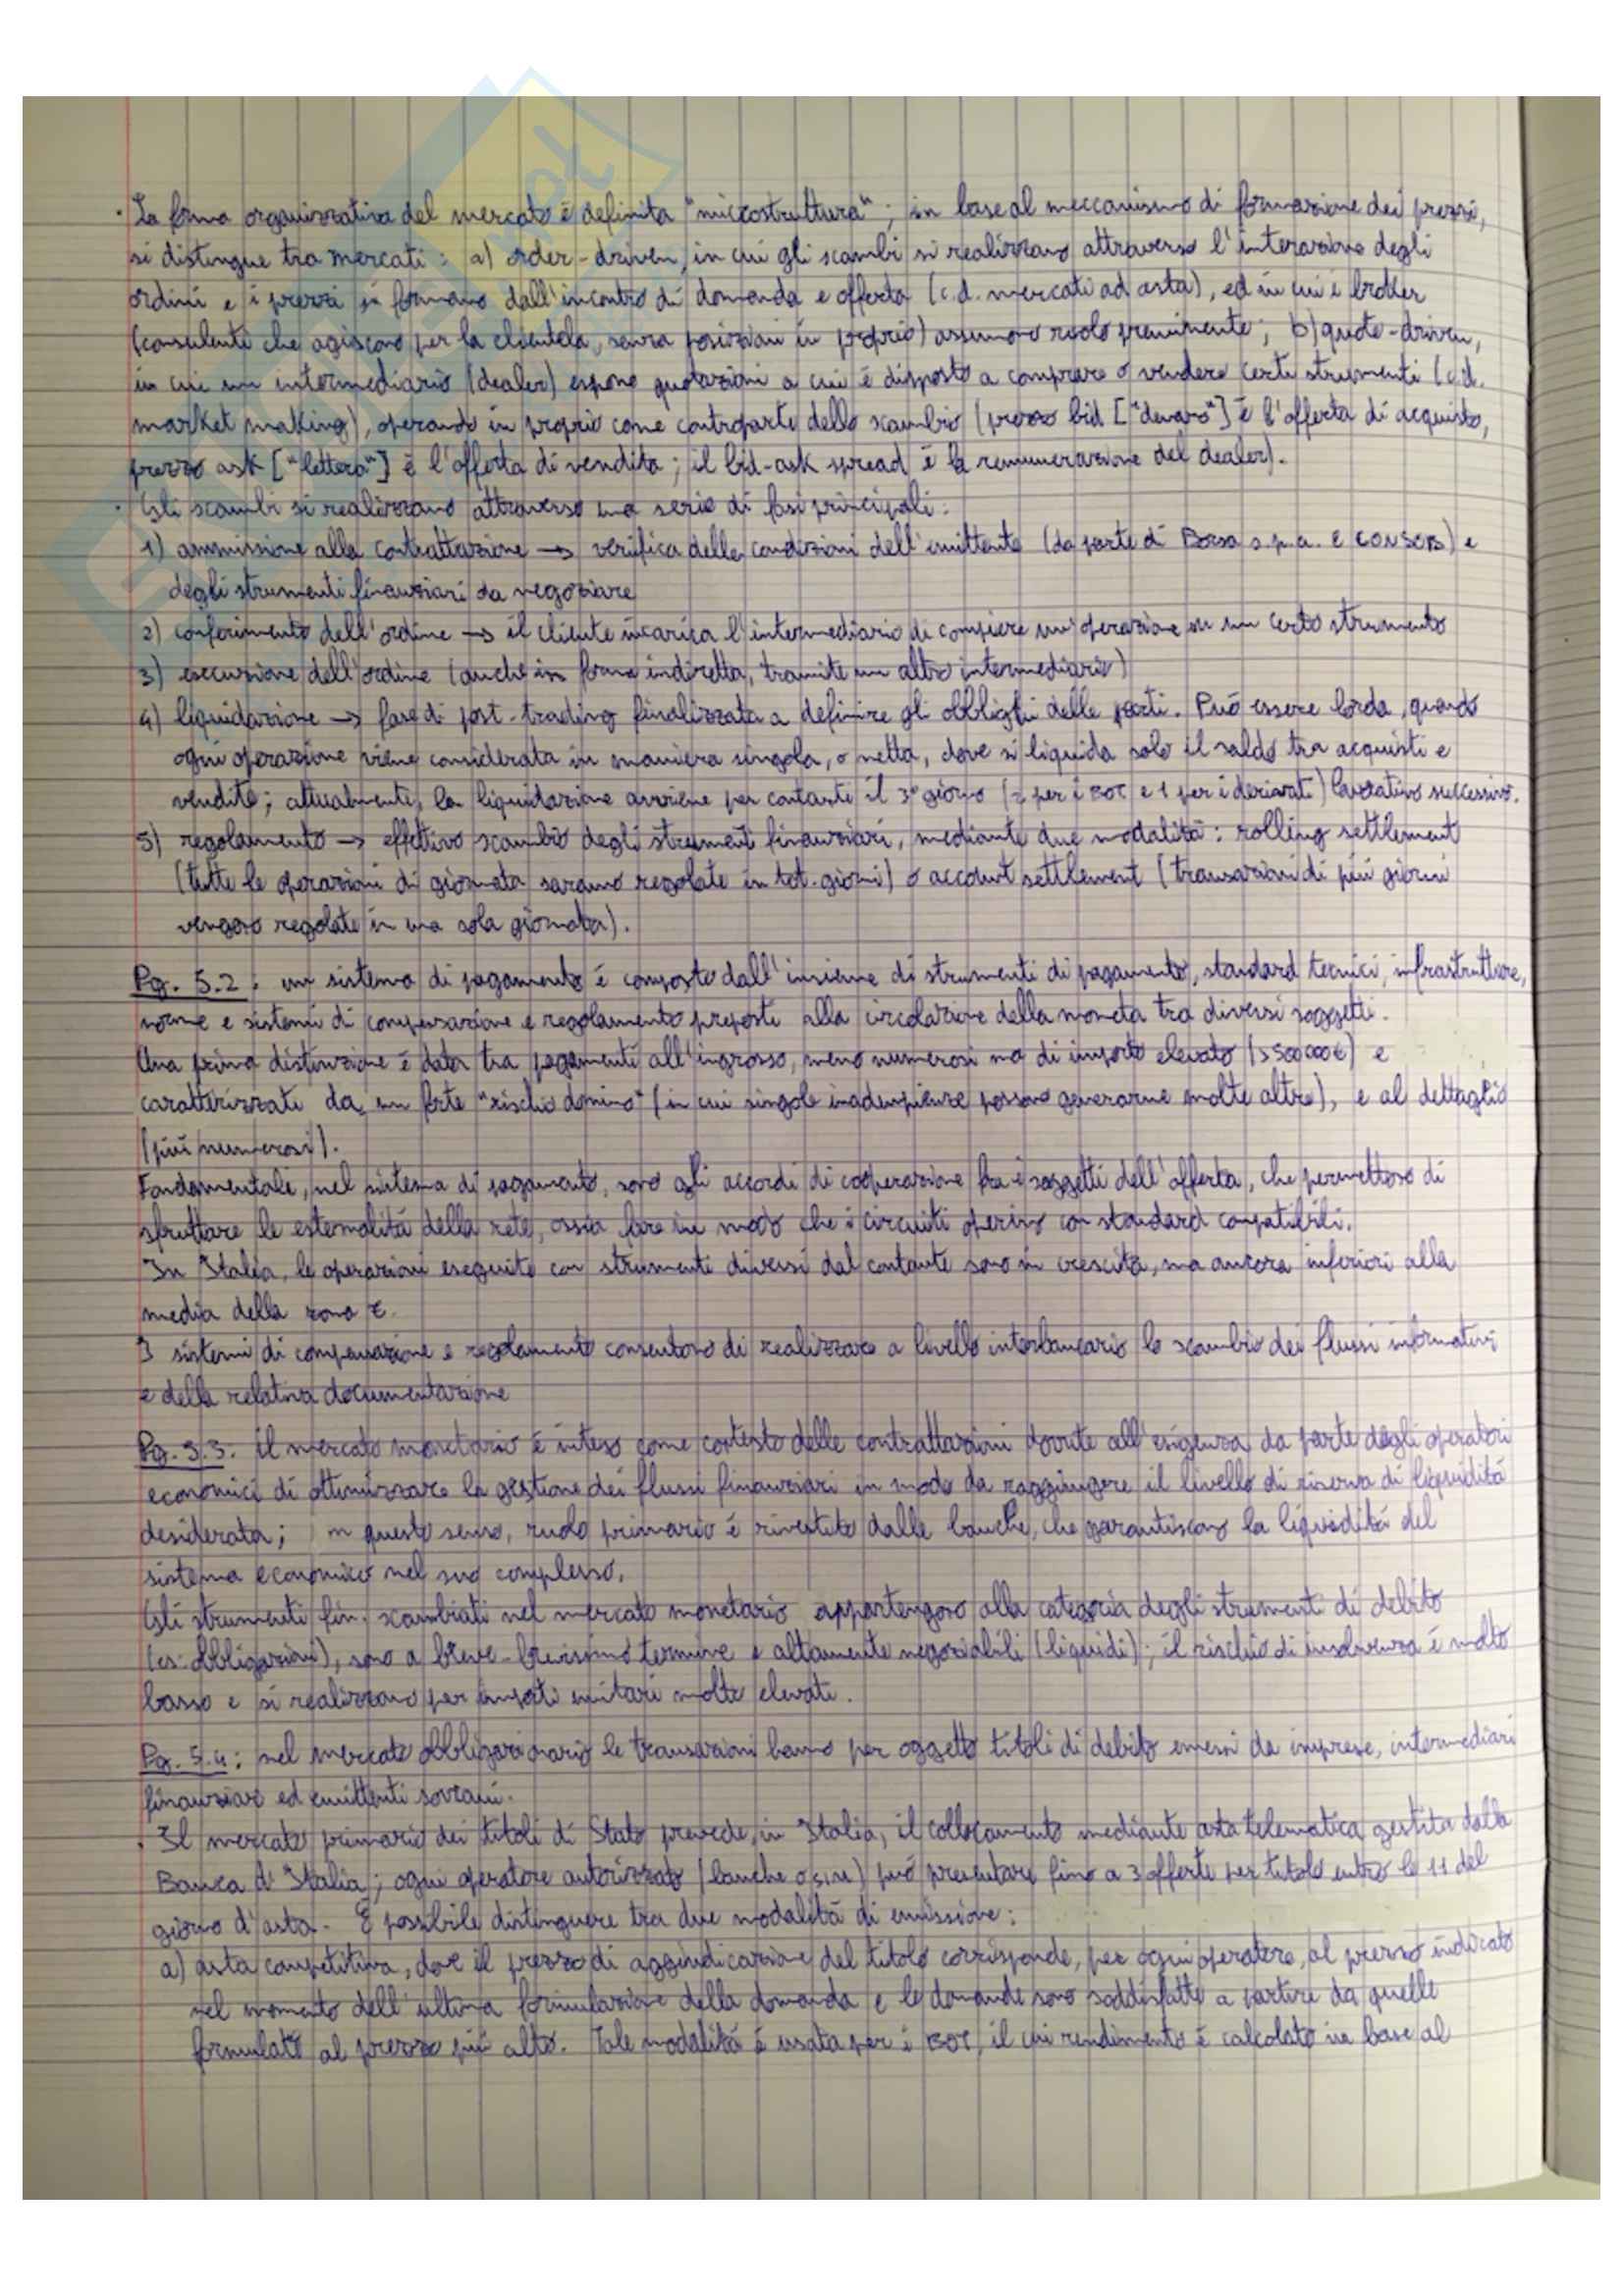 · La forma organizzativa del mercato è definita "microstruttura"; in base al meccanismo di formazione dei prezzi,
si distingue tra mercati: a) order-driven, in cui gli scambi si realizzano attraverso l'interazione degli
ordini e i prezzi si formano dall'incontro di domanda e offerta (c.d. mercati ad asta), ed in cui i broker
(consulenti che agiscono per la clientela, senza posizioni in proprio) assumono ruolo preminente; b) quote-driven,
in cui un intermediario (dealer) espone quotazioni a cui è disposto a comprare o vendere certi strumenti (c.d.
market making), operando in proprio come controparte dello scambio (prezzo bid ["denaro"] è l'offerta di acquisto,
prezzo ask ["lettera"] è l'offerta di vendita; il bid-ask spread è la remunerazione del dealer).
· Gli scambi si realizzano attraverso una serie di fasi principali:
1) ammissione alla contrattazione → verifica delle condizioni dell'emittente (da parte di Borsa s.p.a. e CONSOB) e
degli strumenti finanziari da negoziare
2) conferimento dell'ordine → il cliente incarica l'intermediario di compiere un'operazione su un certo strumento
3) esecuzione dell'ordine (anche in forma indiretta, tramite un altro intermediario)
4) liquidazione → fase di post-trading finalizzata a definire gli obblighi delle parti. Può essere lorda, quando
ogni operazione viene considerata in maniera singola, o netta, dove si liquida solo il saldo tra acquisti e
vendite; attualmente, la liquidazione avviene per contanti il 3° giorno (2 per i BOT e 1 per i derivati) lavorativo successivo.
5) regolamento → effettivo scambio degli strumenti finanziari, mediante due modalità: rolling settlement
(tutte le operazioni di giornata saranno regolate in tot. giorni) o account settlement (transazioni di più giorni
vengono regolate in una sola giornata).
Pg. 5.2: un sistema di pagamento è composto dall'insieme di strumenti di pagamento, standard tecnici, infrastrutture,
norme e sistemi di compensazione e regolamento preposti alla circolazione della moneta tra diversi soggetti.
Una prima distinzione è data tra pagamenti all'ingrosso, meno numerosi ma di importo elevato (>500000€) e
caratterizzati da un forte "rischio domino" (in cui singole inadempienze possono generarne molte altre), e al dettaglio
(più numerosi).
Fondamentali, nel sistema di pagamento, sono gli accordi di cooperazione fra i soggetti dell'offerta, che permettono di
sfruttare le esternalità della rete, ossia fare in modo che i circuiti operino con standard compatibili.
In Italia, le operazioni eseguite con strumenti diversi dal contante sono in crescita, ma ancora inferiori alla
media della zona €.
I sistemi di compensazione e regolamento consentono di realizzare a livello interbancario lo scambio dei flussi informativi
e della relativa documentazione
Pg. 5.3: il mercato monetario è inteso come contesto delle contrattazioni dovute all'esigenza da parte degli operatori
economici di ottimizzare la gestione dei flussi finanziari in modo da raggiungere il livello di riserva di liquidità
desiderata; in questo senso, ruolo primario è rivestito dalle banche, che garantiscono la liquidità del
sistema economico nel suo complesso.
Gli strumenti fin. scambiati nel mercato monetario appartengono alla categoria degli strumenti di debito
(es: obbligazioni), sono a breve-brevissimo termine e altamente negoziabili (liquidi); il rischio di insolvenza è molto
basso e si realizzano per importi unitari molto elevati.
Pg. 5.4: nel mercato obbligazionario le transazioni hanno per oggetto titoli di debito emessi da imprese, intermediari
finanziari ed emittenti sovrani.
· Il mercato primario dei titoli di Stato prevede, in Italia, il collocamento mediante asta telematica gestita dalla
Banca d'Italia; ogni operatore autorizzato (banche o SIM) può presentare fino a 3 offerte per titolo entro le 11 del
giorno d'asta. È possibile distinguere tra due modalità di emissione:
a) asta competitiva, dove il prezzo di aggiudicazione del titolo corrisponde, per ogni operatore, al prezzo indicato
nel momento dell'ultima formulazione della domanda e le domande sono soddisfatte a partire da quelle
formulate al prezzo più alto. Tale modalità è usata per i BOT, il cui rendimento è calcolato in base al